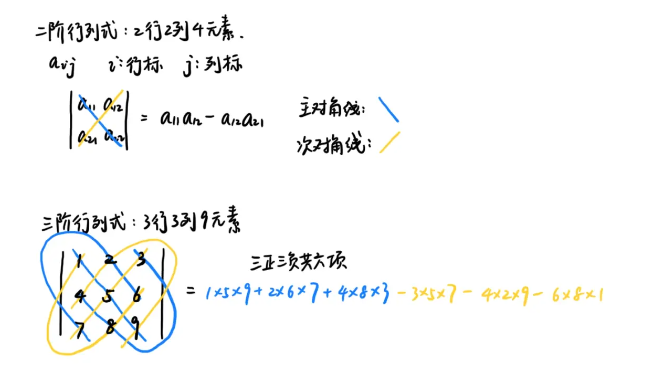 二阶行列式：2行2列4元素.
aij i:行标 j:列标
a11 a12
a21 a22
= a11a12 - a12a21
主对角线：
次对角线：
三阶行列式：3行3列9元素
1 2 3
4 5 6
7 8 9
三正三负共六项
= 1×5×9+2×6×7+4×8×3-3×5×7-4×2×9-6×8×1